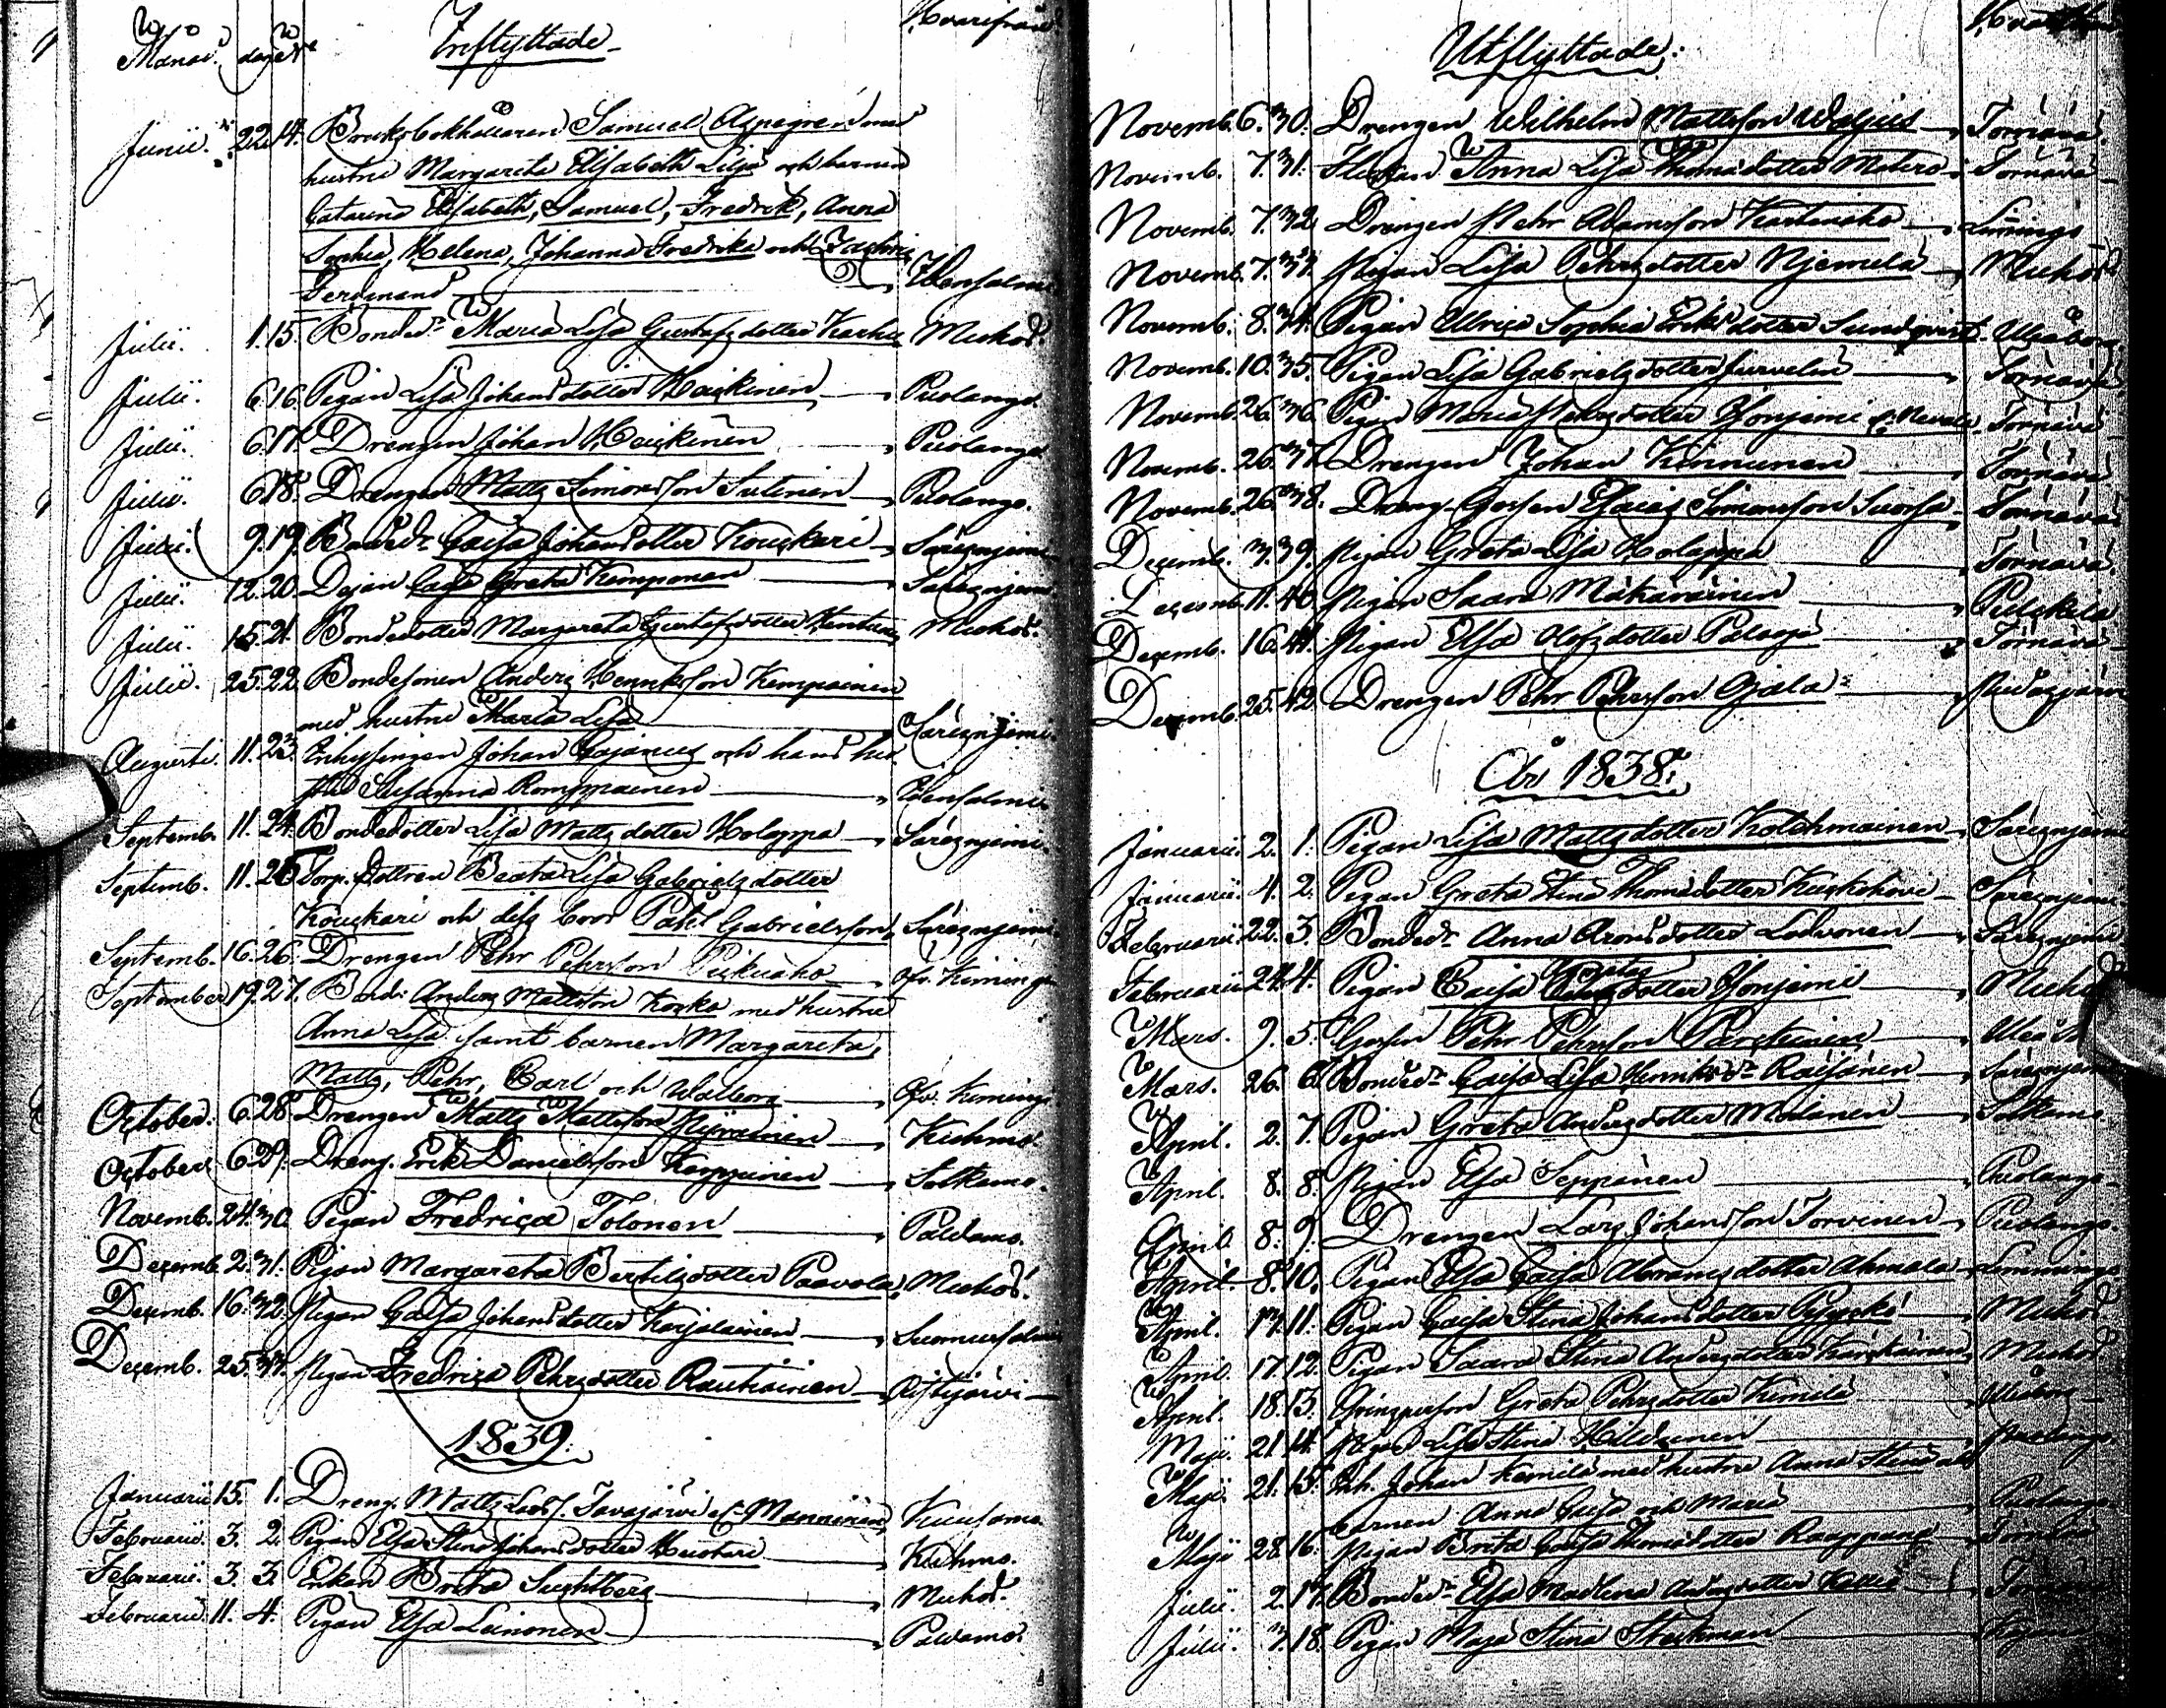 Månad. dag. N:o Inflyttade Hvarifrån
Junii. 22. 14. Bruksbokhållaren Samuel Aspegren med
hustru Margareta Elisabeth Lilja och barnen
Catarina Elisabeth, Samuel, Fredrik, Anna
Sophia, Helena, Johanna Fredrika och
Ferdinand Idensalmi
Julii. 1. 15. Bonded:r Maria Lisa Gustafsdotter Karhu Muhos.
Julii. 6. 16. Pigan Lisa Johansdotter Haickinen Puolango
Julii. 6. 17. Drengen Johan Haickinen Puolango
Julii. 6. 18. Drengen Matts Simonsson Sutinen Puolango.
Julii. 9. 19. Bonded:r Caisa Johansdotter Kouckari Säresniemi
Julii. 12. 20. Pigan Caisa Greta Kemponen Säresniemi
Julii. 15. 21. Bondedotter Margareta Gustafsdotter Muhos.
Julii. 25. 22. Bondesonen Anders Henriksson Kempainen
med hustru Maria Lisa Säresniemi.
Augusti. 11. 23. Inhysingen Johan Cajanus och hans hus
tru Susanna Romppainen Idensalmi
Septemb. 11. 24. Bondedotter Lisa Mattsdotter Holappa Säresniemi.
Septemb. 11. 25. Torp. dottren Beata Lisa Gabrielsdotter
Kouckari och dess bror Påhl Gabrielsson Säresniemi.
Septemb. 16. 26. Drengen Pehr Pehrsson Pickuaho Öfv. Kiminge
September 19. 27. Bond: Anders Mattsson Koska med hustru
Anna Lisa samt barnen Margareta,
Matts, Pehr, Carl och Walborg Öfv. Kiminge
October. 6. 28. Drengen Matts Mattsson Kuhmo.
October 6. 29. Dreng. Erik Danielsson Karppinen Sotkamo.
Novemb. 24. 30. Pigan Fredrica Tolonen Paldamo.
Decemb. 2. 31. Pigan Margareta Bertilsdotter Paavola Muhos.
Decemb. 16. 32. Pigan Caisa Johansdotter Karjalainen Suomussalmi
Decemb. 25. 33. Pigan Fredrica Pehrsdotter Rautiainen Ristijärvi
1839.
Januarii 15. 1. Dreng. Matts Larss. Tavajärvi el. Manninen Kuusamo
Februarii. 3. 2. Pigan Elsa Stina Johansdotter Kuhmo.
Februarii. 3. 3. Enkan Brita Muhos.
Februarii. 11. 4. Pigan Elsa Leinonen Paldamo.
Utflyttade.
Novemb. 6. 30. Drengen Wilhelm Mattsson Waljus Törnävä.
Novemb. 7. 31. Flickan Anna Lisa Thomasdotter Matero Törnävä
Novemb. 7. 32. Drengen Pehr Adamsson Karhuaho Limingo
Novemb. 7. 33. Pigan Lisa Pehrsdotter Niemelä Muhos
Novemb. 8. 34. Pigan Ulrica Sophia Eriksdotter Sundqvist Uleåborg
Novemb. 10. 35. Pigan Lisa Gabrielsdotter Jurvelin Törnävä
Novemb. 26. 36. Pigan Maria Pehrsdotter Honjemi Törnävä
Novemb. 26. 37. Drengen Johan Kinnunen Törnävä
Novemb. 26. 38. Dreng. Gossen Esaias Simonsson Suorsa Törnävä
Decemb. 3. 39. Pigan Greta Lisa Holappa Törnävä.
Decemb. 11. 40. Pigan Saara Mäkäräinen Pulckila
Decemb. 16. 41. Pigan Elsa Olofsdotter Palosa Törnävä
Decemb. 25. 42. Drengen Pehr Pehrsson Ojala Pudasjärvi
År 1838.
Januarii. 2. 1. Pigan Lisa Mattsdotter Kolehmainen Säresniemi
Januarii. 4. 2. Pigan Greta Stina Thomasdotter Säresniemi
Februarii 22. 3. Bonded:r Anna Aronsdotter Lodvonen Säresniemi
Februarii 24. 4. Pigan Caisa Honjemi Muhos
Mars. 9. 5. Gossen Pehr Pehrsson Uleå
Mars. 26. 6. Bonded:r Caisa Lisa Henriksd:r Räisänen Säresniemi
April. 2. 7. Pigan Greta Andersdotter Malinen Sotkamo
April. 8. 8. Pigan Elsa Seppänen Puolango
April. 8. 9. Drengen Lars Johansson Torvinen Puolango.
April. 8. 10. Pigan Elsa Caisa Abramsdotter Ahmala Limmingo
April. 17. 11. Pigan Caisa Stina Johansdotter Muhos
April. 17. 12. Pigan Saara Stina Andersdotter Muhos
April. 18. 13. Greta Pehrsdotter Kemilä Uleåborg
Maji. 21. 14. Pigan Lisa Stina Puolango.
Maji. 21. 15. Inh. Johan Kemilä med hustru Anna Stina
barnen Anna Caisa och Maria Puolango
Maji 28. 16. Pigan Brita Caisa Thomasdotter Raappana Törnävä
Julii. 2. 17. Bonded:r Elsa Madlena Andersdotter Törnävä
Julii. 3. 18. Pigan Maja Stina Stickman